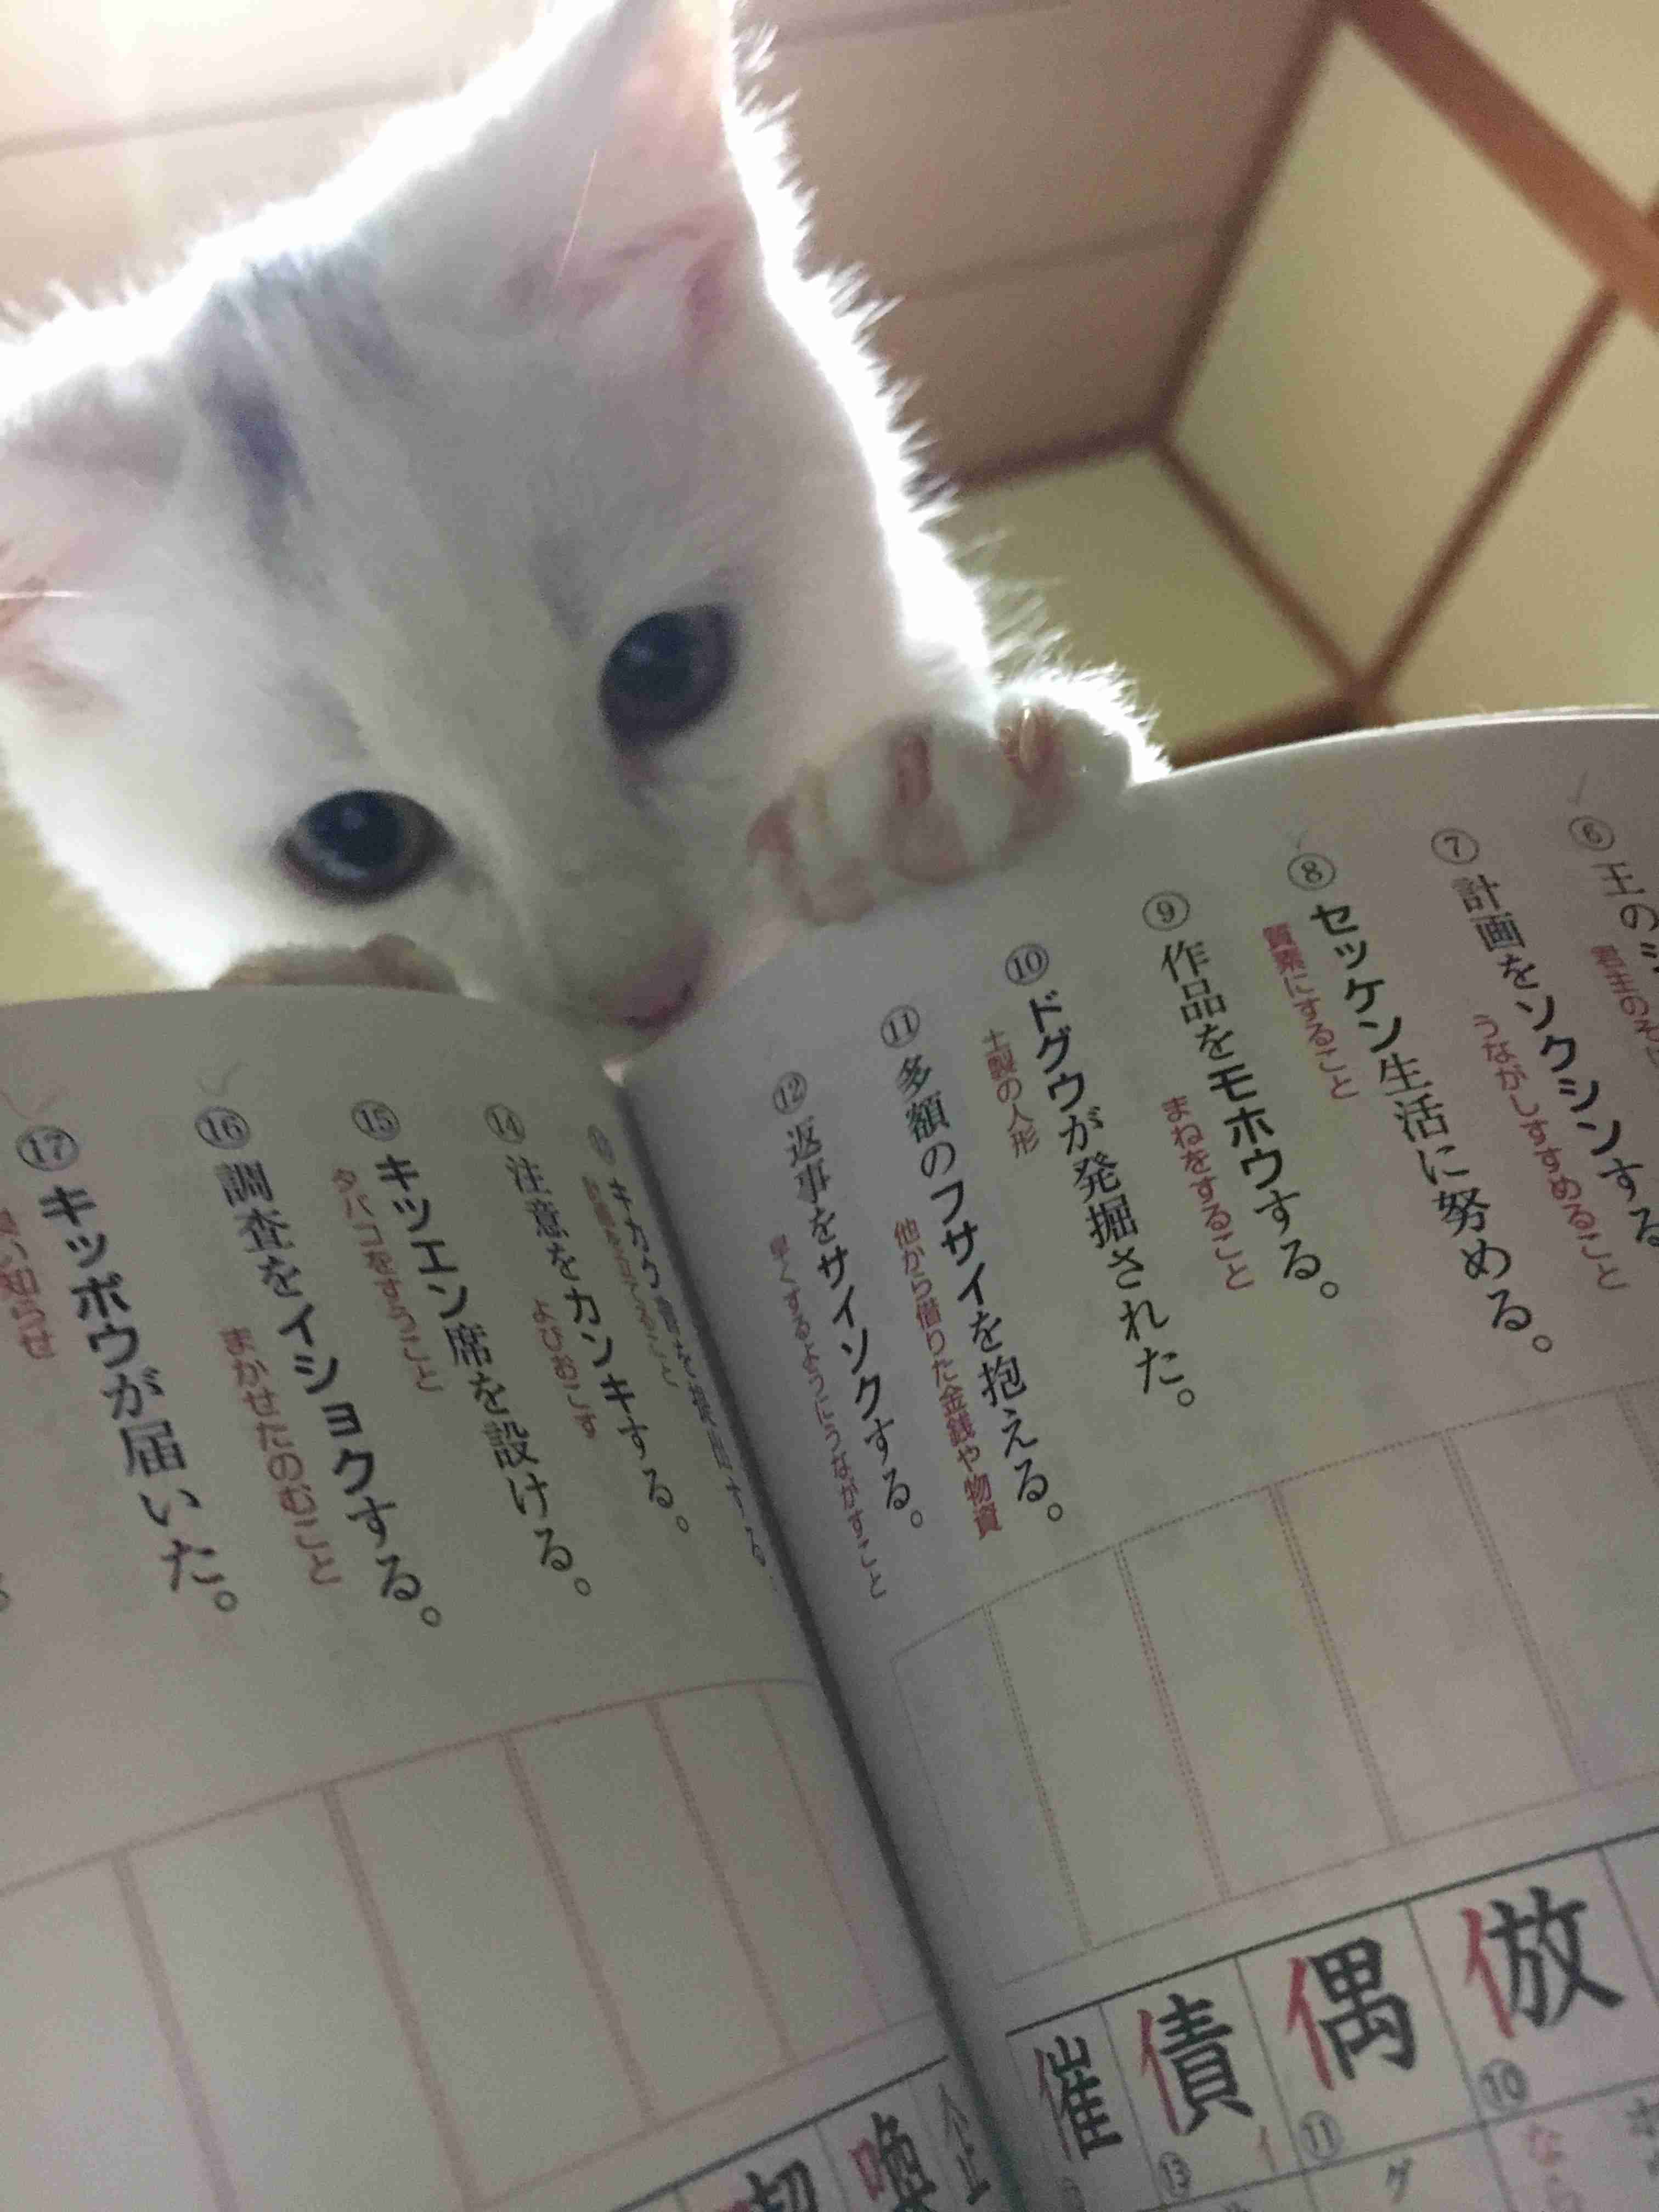 ⑥王の
⑦計画をソクシンする
うながしすすめること
⑧セッケン生活に努める。
質素にすること
⑨作品をモホウする。
まねをすること
⑩ドグウが発掘された。
土製の人形
⑪多額のフサイを抱える。
他から借りた金銭や物資
⑫返事をサイソクする。
早くするようにうながすこと
⑭注意をカンキする。
よびおこす
⑮キツエン席を設ける。
タバコをすうこと
⑯調査をイショクする。
まかせたのむこと
⑰キッポウが届いた。
よい知らせ
倣
⑩
偶
⑪
債
催
喚
喫